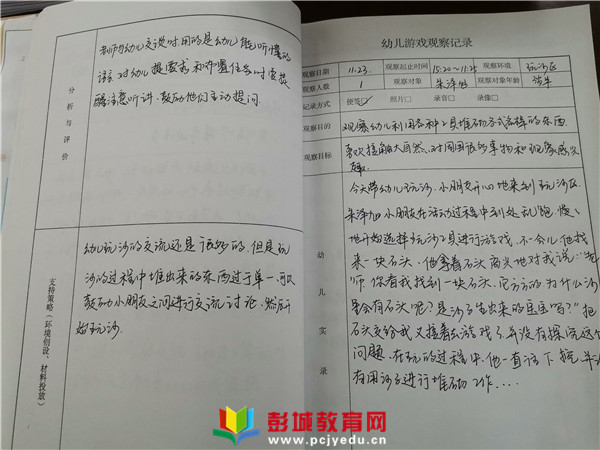 分析与评价
老师与幼儿交谈时,用的是幼儿能听懂的
语言,对幼儿提要求和布置任务时要提
醒注意听讲,鼓励他们主动提问.
支持策略(环境创设、材料投放)
幼儿玩沙的交流还是很好的,但是玩
沙的过程中堆出来的东西过于单一.可以
鼓励小朋友之间进行交流讨论,然后开
始玩沙.
幼儿游戏观察记录
观察日期 11.23. 观察起止时间 15:20~11:25 观察环境 玩沙区
观察人数 1 观察对象 观察对象年龄
记录方式 便签 照片□ 录音□ 录像□
观察目的 观察幼儿利用各种工具堆砌方式各样的东西
观察目标 喜欢接触大自然,对周围的事物和现象感兴
趣.
幼儿实录
今天带幼儿玩沙,小朋友开心地来到玩沙区
小朋友在活动过程中到处乱跑,慢慢
地开始选择玩沙工具进行游戏,不一会儿他找
来一块石头,他拿着石头高兴地对我说:"老
师你看我找到一块石头,它方方的,为什么沙
里会有石头呢?是沙子生出来的宝宝吗?"把
石头交给我又接着去游戏了,并没有探究这个
问题,在玩的过程中,他一直
有用沙子进行堆砌工作....
彭城教育网
www.pcjyedu.cn